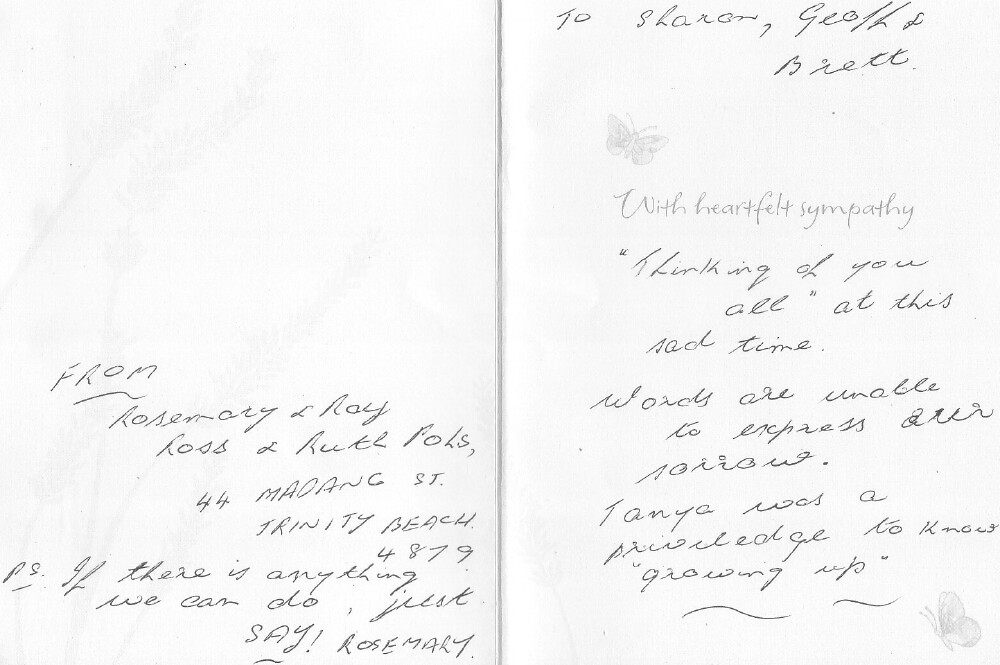 FROM
Rosemary & Ray
Ross & Ruth Pohs,
44 MADANG ST.
TRINITY BEACH.
4879
PS. If there is anything
we can do, just
SAY! ROSEMARY.
TO Sharon, Geoff &
Brett.
With heartfelt sympathy
"Thinking of you
all" at this
sad time.
Words are unable
to express our
sorrow.
Tanya was a
priviledge to know
"growing up"